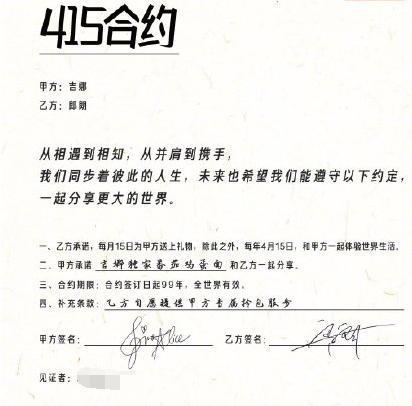 415合约
甲方：吉娜
乙方：郎朗
从相遇到相知，从并肩到携手，
我们同步着彼此的人生，未来也希望我们能遵守以下约定，
一起分享更大的世界。
一、乙方承诺，每月15日为甲方送上礼物，除此之外，每年4月15日，和甲方一起体验世界生活。
二、甲方承诺 吉娜独家番茄鸡蛋面 和乙方一起分享。
三、合约期限：合约签订日起99年，全世界有效。
四、补充条款：乙方自愿提供甲方专属拎包服务
甲方签名： 乙方签名：
见证者：